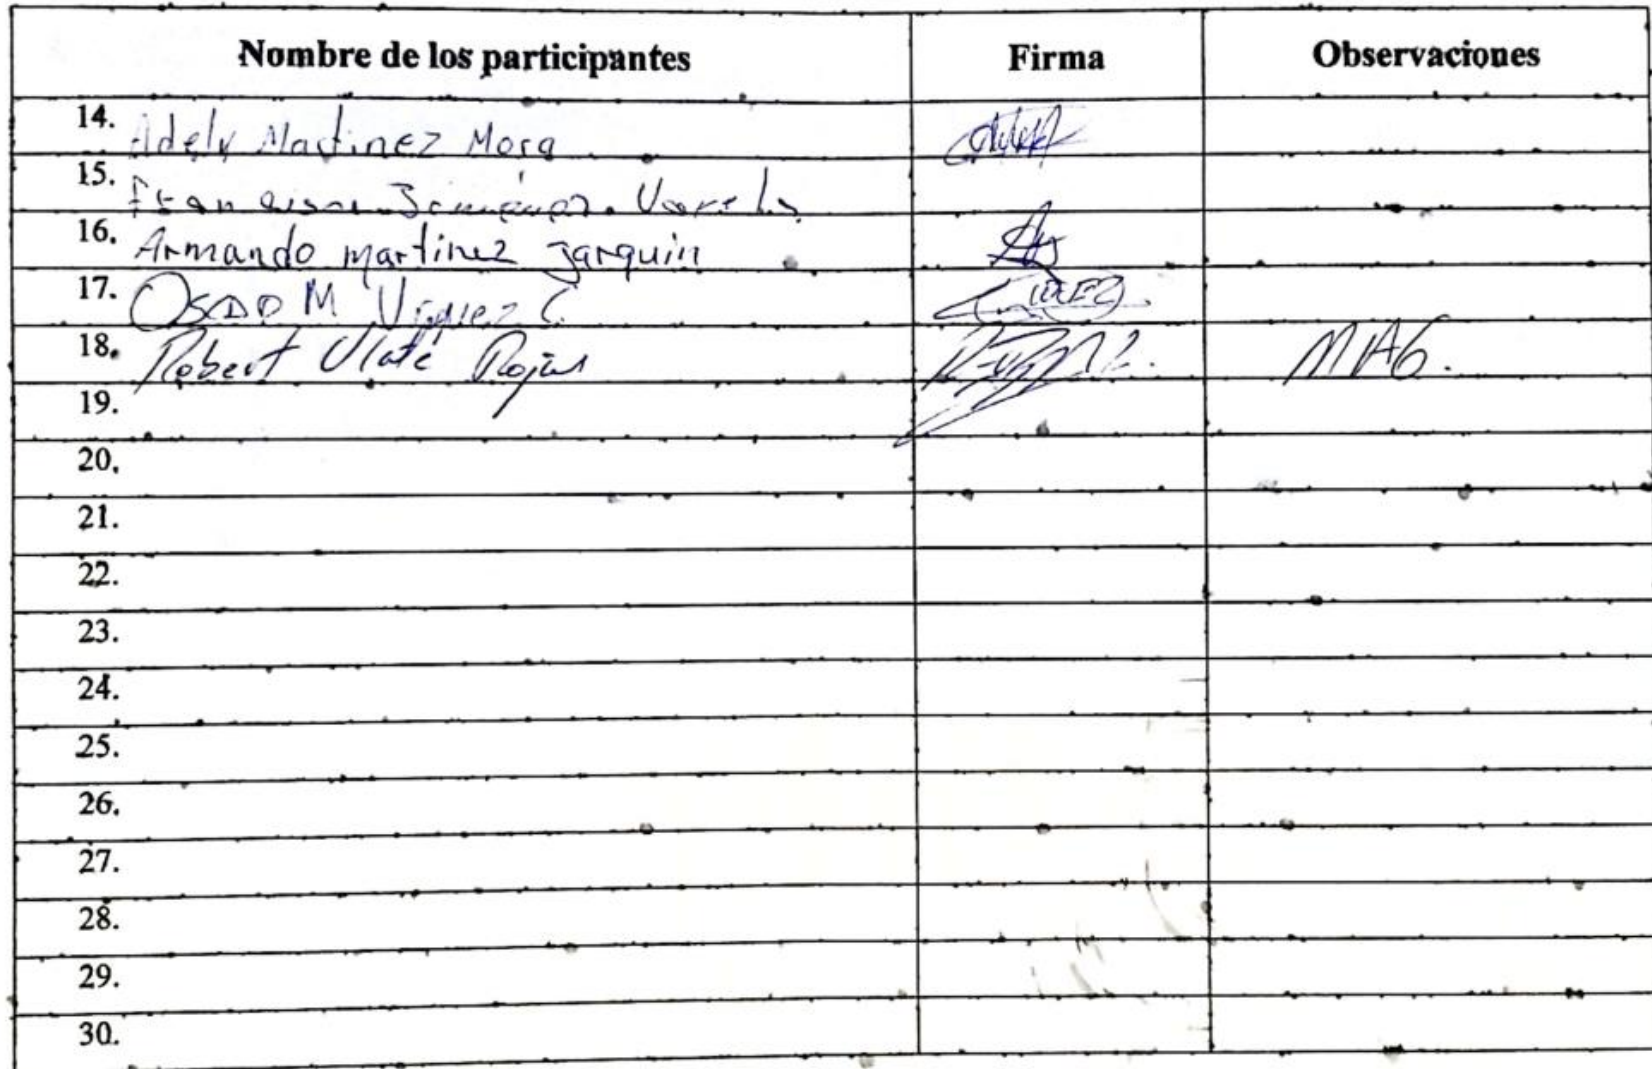 Nombre de los participantes Firma Observaciones
14. Adely Martinez Mora
15. Jimenez Varela
16. Armando martinez jarquin
17. M C.
18. Robert Ulate Rojas MAG.
19.
20.
21.
22.
23.
24.
25.
26.
27.
28.
29.
30.